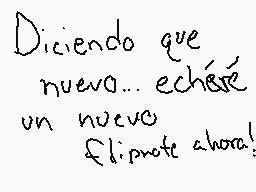 Diciendo que
nuevo... echéré
un nuevo
flipnote ahora!